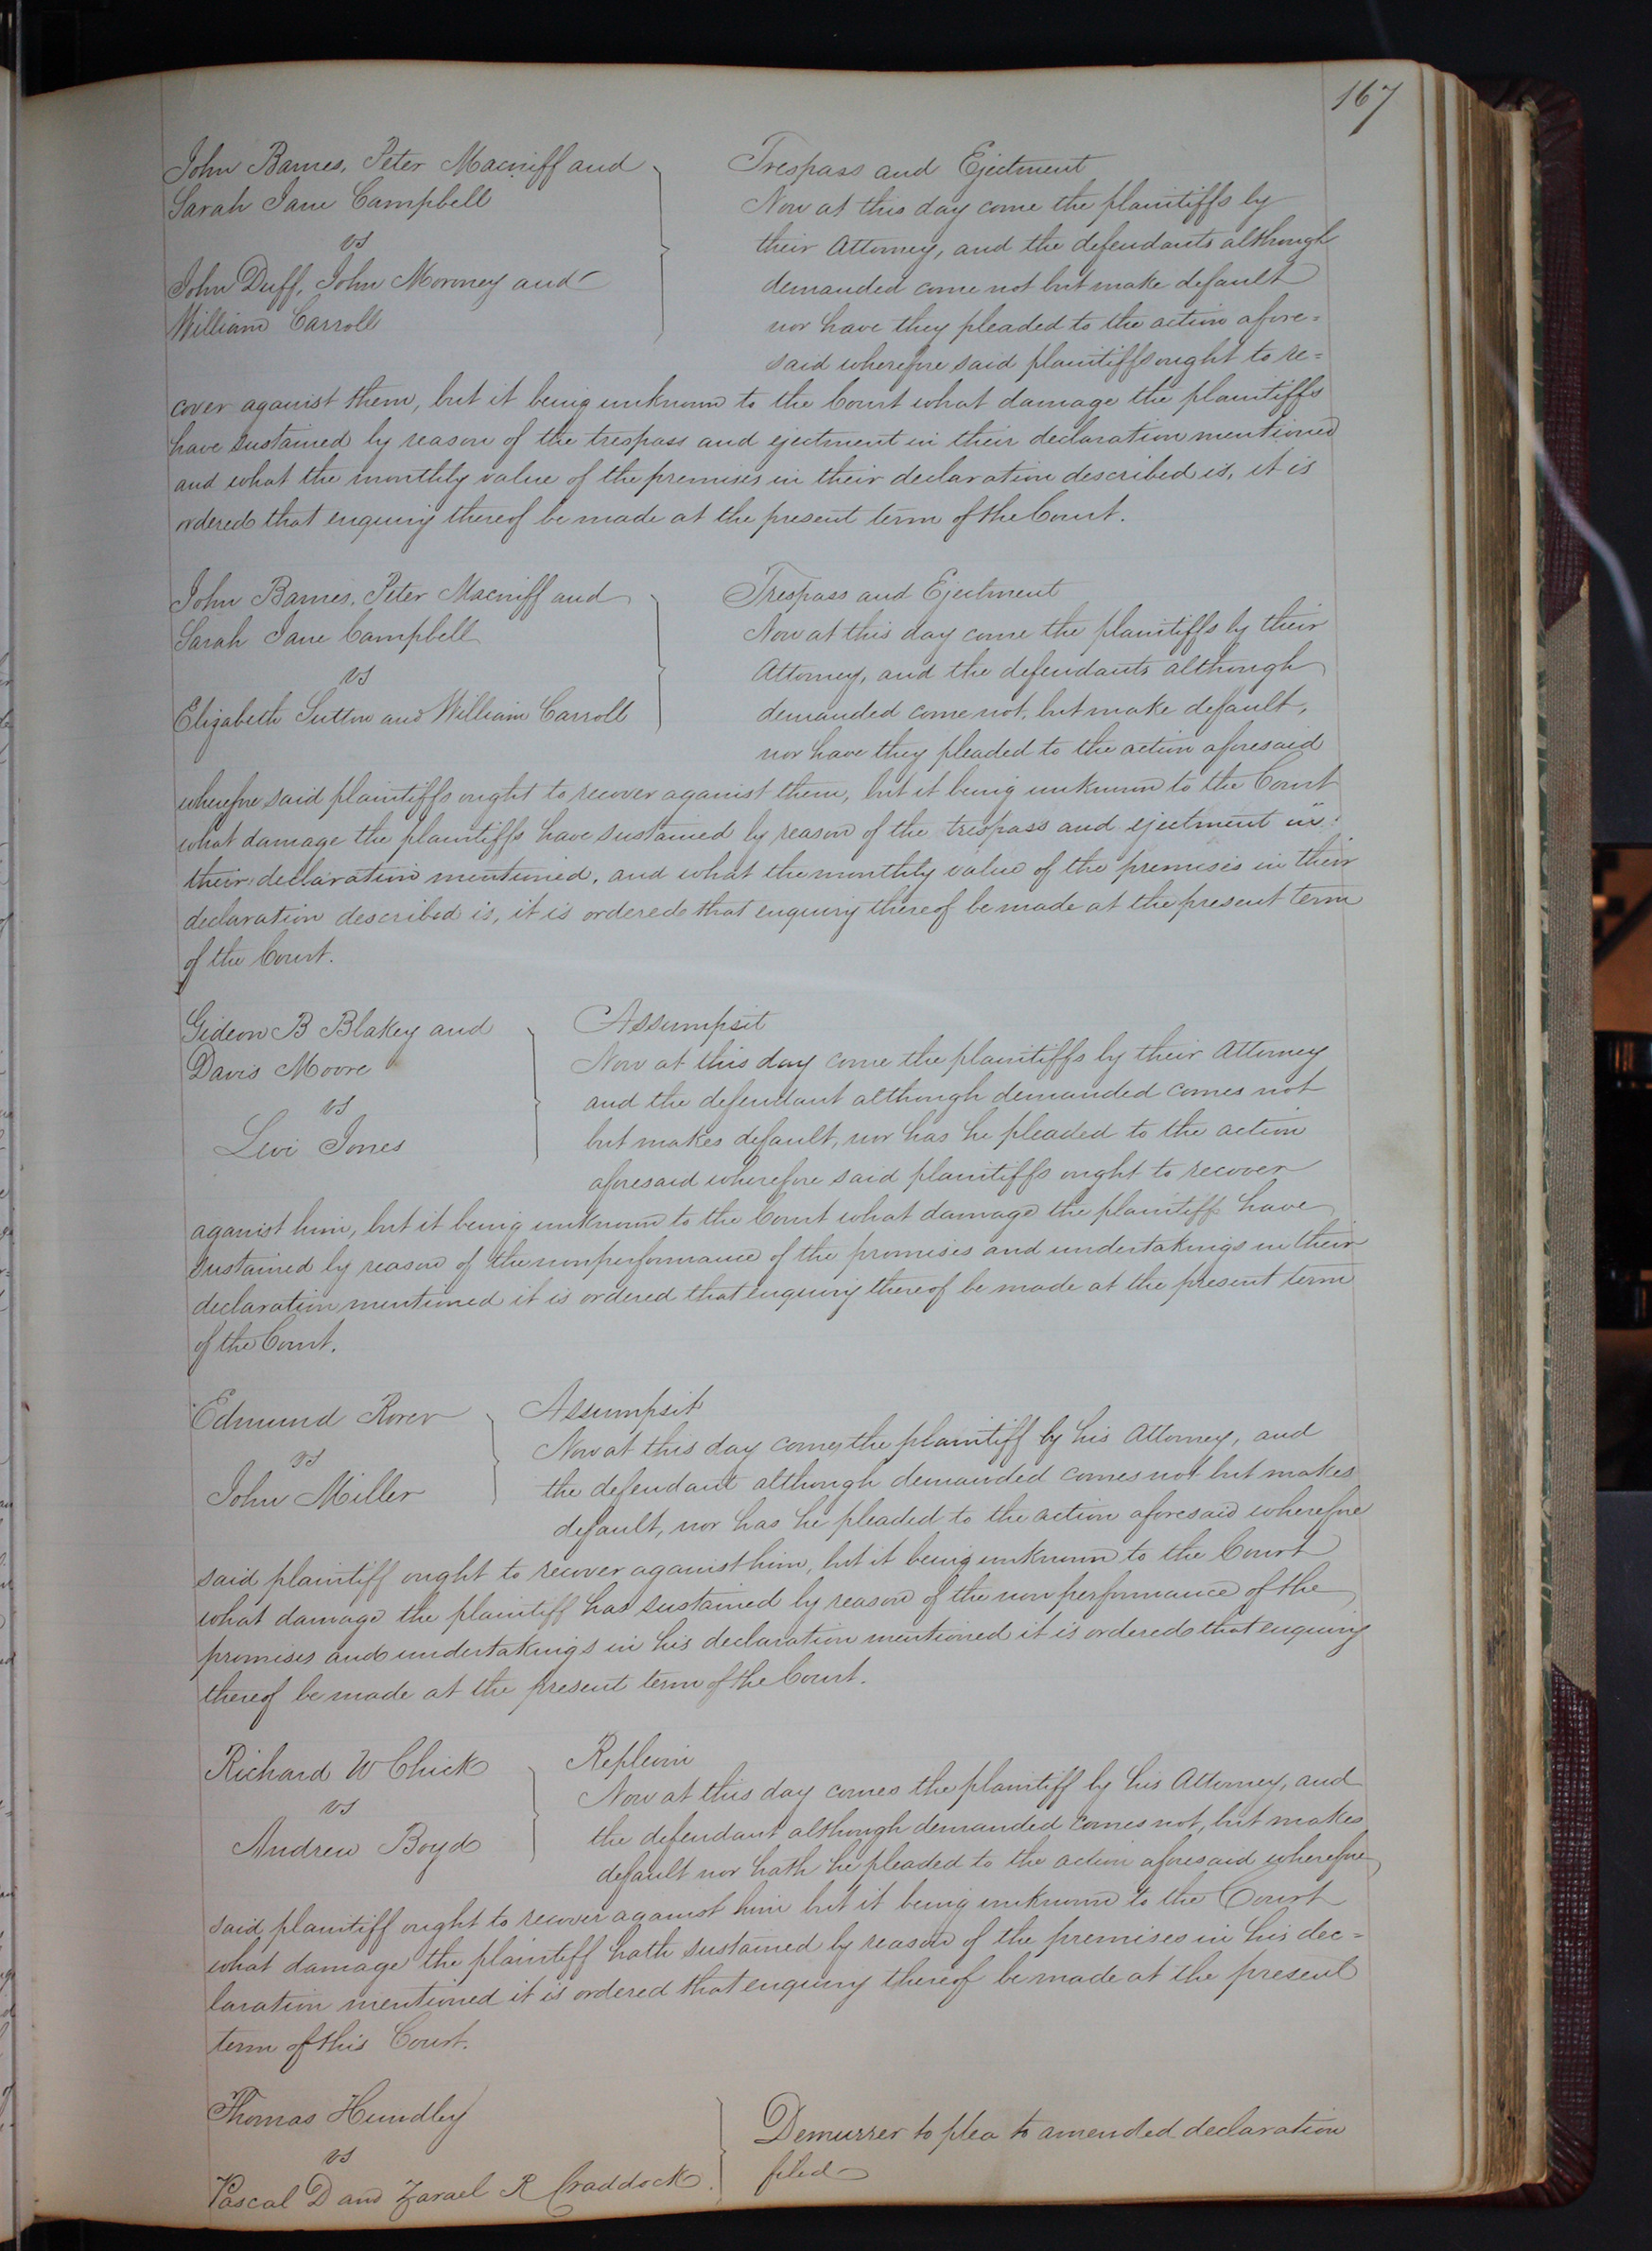 167
John Barnes, Peter Macniff and
Sarah Jane Campbell
vs
John Duff, John Moroney and
William Carroll
Trespass and Ejectment
Now at this day come the plaintiffs by
their Attorney, and the defendants although
demanded come not but make default
nor have they pleaded to the action afore=
said wherefore said plaintiffs ought to re=
cover against them, but it being unknown to the Court what damage the plaintiffs
have sustained by reason of the trespass and ejectment in their declaration mentioned
and what the monthly value of the premises in their declaration described is, it is
ordered that enquiry thereof be made at the present term of the Court.
John Barnes, Peter Macniff and
Sarah Jane Campbell
vs
Elizabeth Sutton and William Carroll
Trespass and Ejectment
Now at this day come the plaintiffs by their
Attorney, and the defendants although
demanded come not, but make default,
nor have they pleaded to the action aforesaid
wherefore said plaintiffs ought to recover against them, but it being unknown to the Court
what damage the plaintiffs have sustained by reason of the trespass and ejectment in
their declaration mentioned, and what the monthly value of the premises in their
declaration described is, it is ordered that enquiry thereof be made at the present term
of the Court.
Gideon B Blakey and
Davis Moore
vs
Levi Jones
Assumpsit
Now at this day come the plaintiffs by their Attorney
and the defendant although demanded comes not
but makes default, nor has he pleaded to the action
aforesaid wherefore said plaintiffs ought to recover
against him, but it being unknown to the Court what damage the plaintiffs have
sustained by reason of the nonperformance of the promises and undertakings in their
declaration mentioned it is ordered that enquiry thereof be made at the present term
of the Court.
Edmund Rover
vs
John Miller
Assumpsit
Now at this day comes the plaintiff by his Attorney, and
the defendant although demanded comes not but makes
default, nor has he pleaded to the action aforesaid wherefore
said plaintiff ought to recover against him, but it being unknown to the Court
what damage the plaintiff has sustained by reason of the non performance of the
promises and undertakings in his declaration mentioned it is ordered that enquiry
thereof be made at the present term of the Court.
Richard W Chick
vs
Andrew Boyd
Replevin
Now at this day comes the plaintiff by his Attorney, and
the defendant although demanded comes not, but makes
default nor hath he pleaded to the action aforesaid wherefore
said plaintiff ought to recover against him but it being unknown to the Court
what damage the plaintiff hath sustained by reason of the premises in his dec=
laration mentioned it is ordered that enquiry thereof be made at the present
term of this Court.
Thomas Hundley
vs
Pascal D and Zarael R Craddock
Demurrer to plea to amended declaration
filed